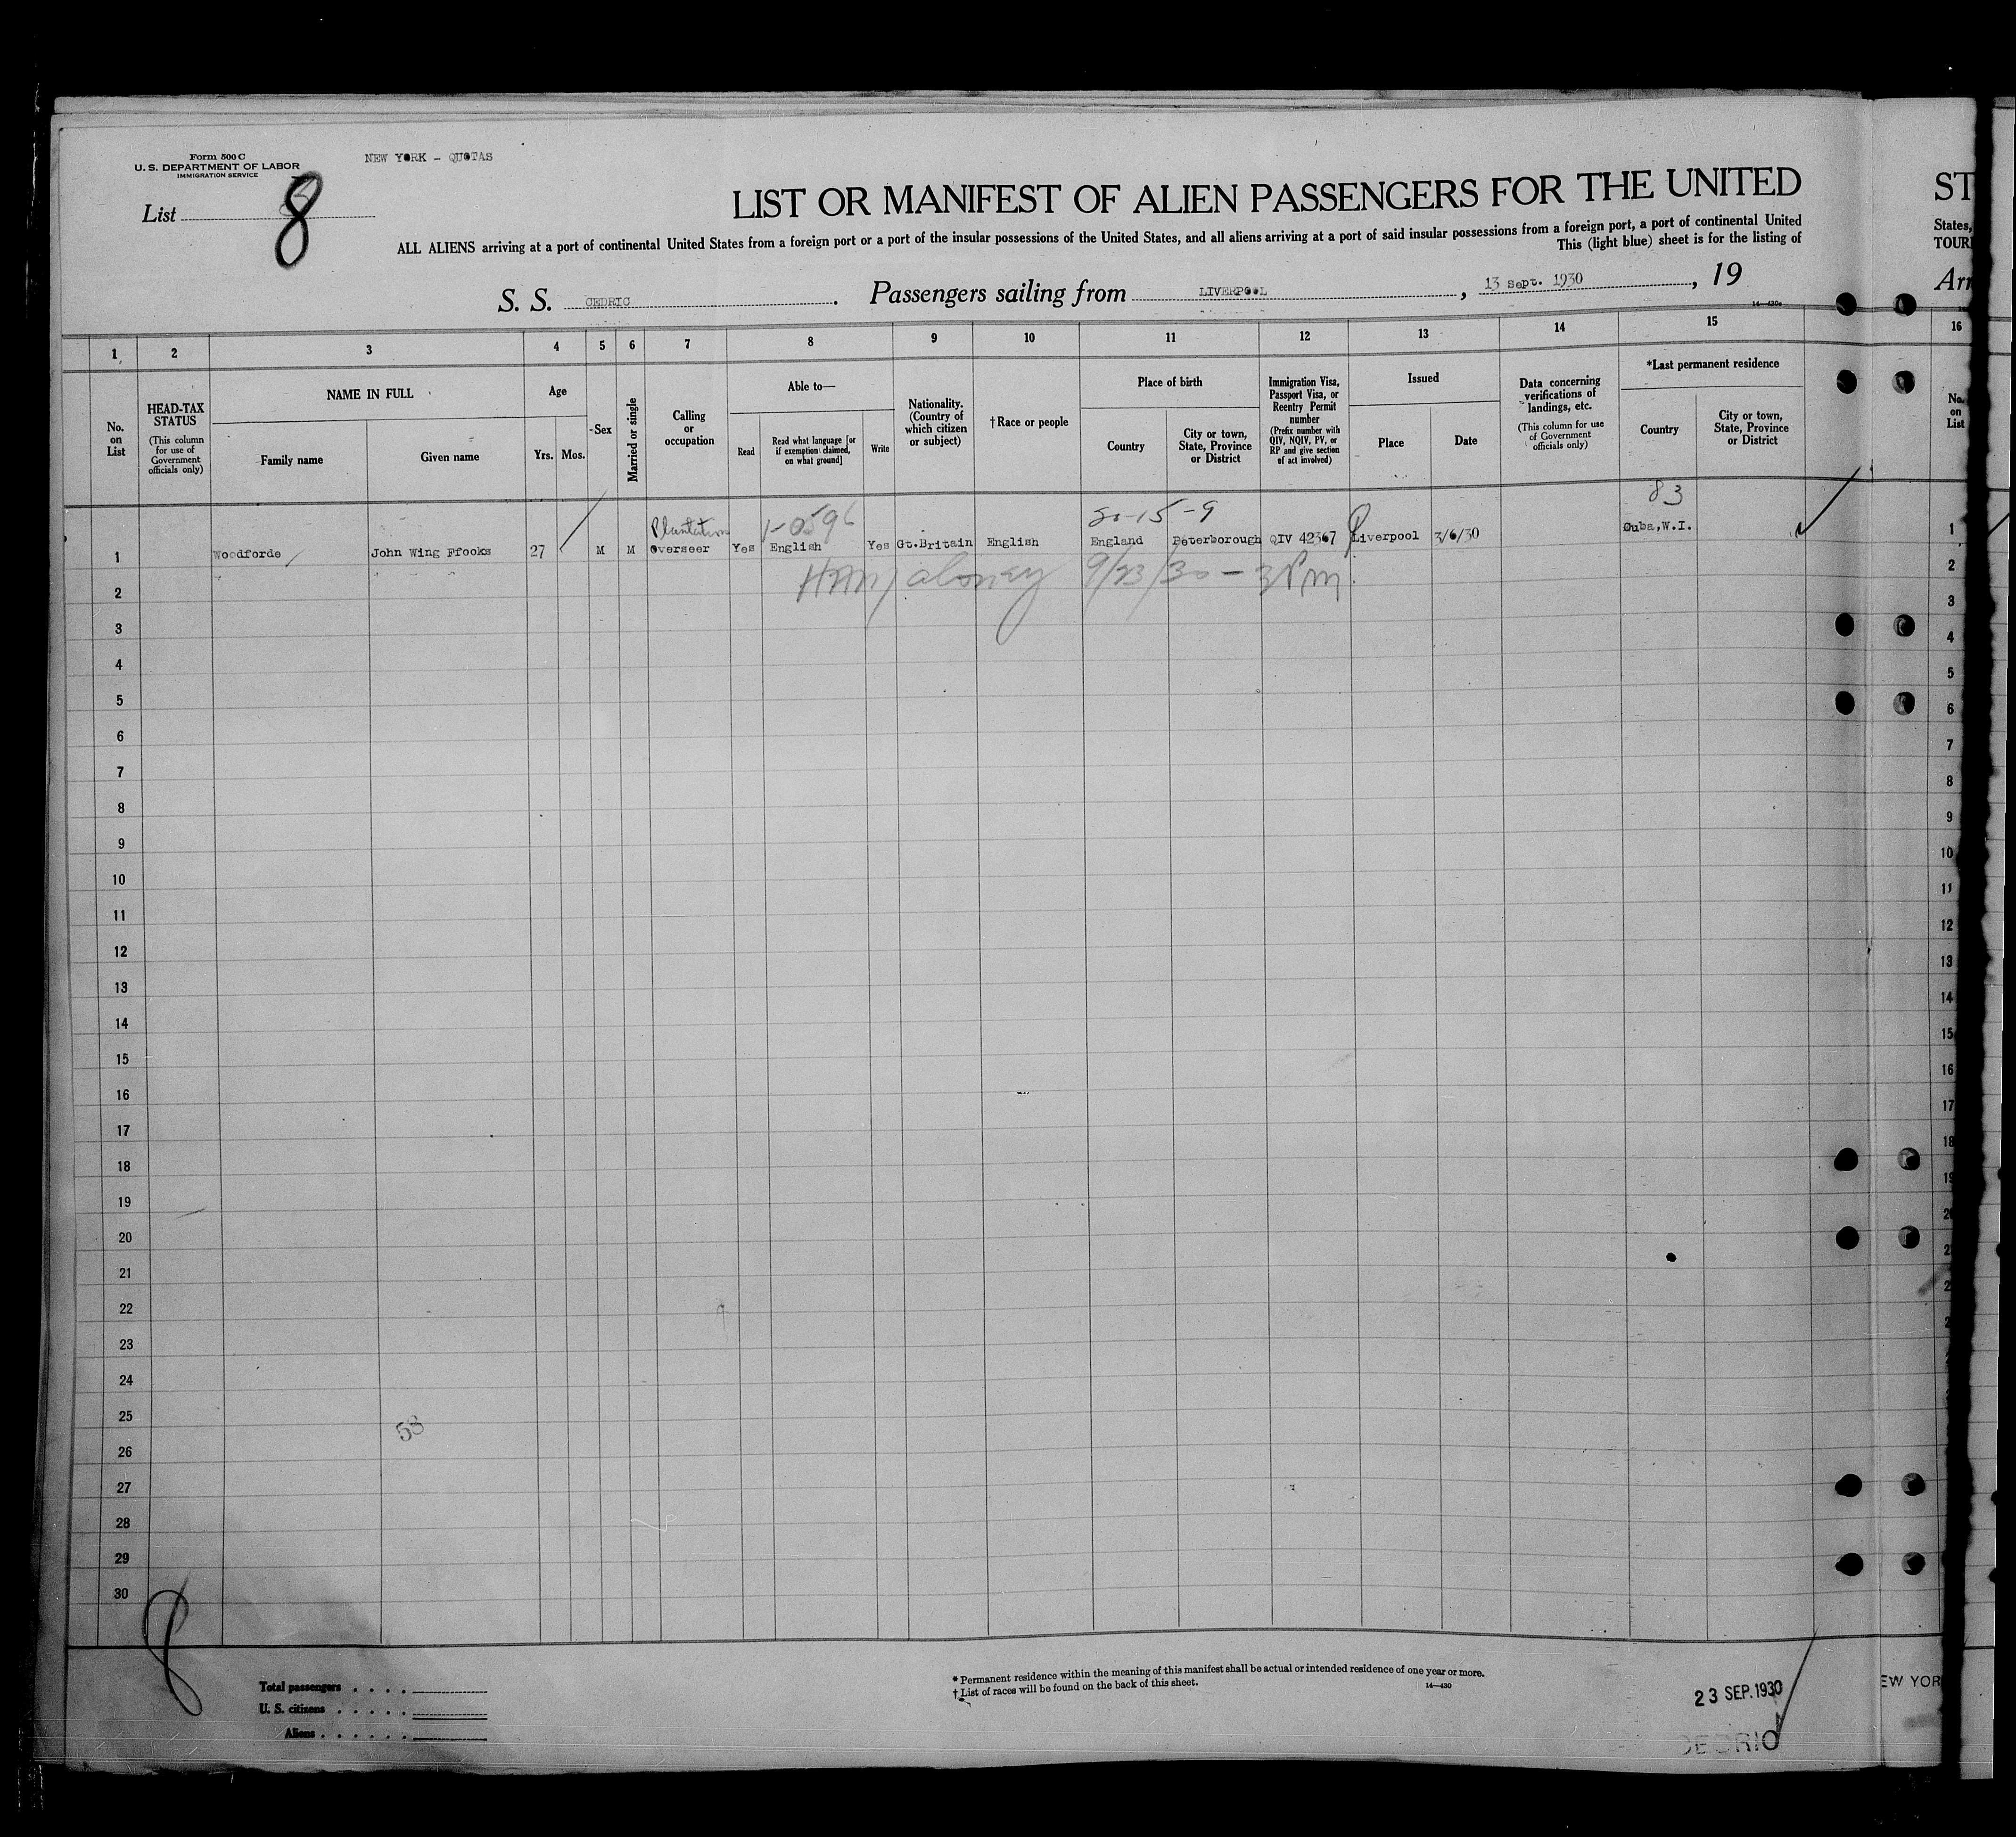 Form 500 C
U. S. DEPARTMENT OF LABOR
IMMIGRATION SERVICE
NEW YORK - QUOTAS
List 8
LIST OR MANIFEST OF ALIEN PASSENGERS FOR THE UNITED
ST
ALL ALIENS arriving at a port of continental United States from a foreign port or a port of the insular possessions of the United States, and all aliens arriving at a port of said insular possessions from a foreign port, a port of continental United
States,
This (light blue) sheet is for the listing of
TOUR
S. S. CEDRIC . Passengers sailing from LIVERPOOL , 13 Sept. 1930 , 19
Arr
14—430c
1 2 3 4 5 6 7 8 9 10 11 12 13 14 15 16
No. on List
HEAD-TAX STATUS
(This column for use of Government officials only)
NAME IN FULL
Family name
Given name
Age
Yrs. Mos.
Sex
Married or single
Calling or occupation
Able to—
Read
Read what language [or if exemption claimed, on what ground]
Write
Nationality. (Country of which citizen or subject)
† Race or people
Place of birth
Country
City or town, State, Province or District
Immigration Visa, Passport Visa, or Reentry Permit number
(Prefix number with QIV, NQIV, PV, or RP and give section of act involved)
Issued
Place
Date
Data concerning verifications of landings, etc.
(This column for use of Government officials only)
*Last permanent residence
Country
City or town, State, Province or District
No. on List
Plantation 83
1 Woodforde John Wing Ffooks 27 M M Overseer Yes English Yes Gt.Britain English England Peterborough QIV 42367 Liverpool 3/6/30 Cuba, W.I. 1
9/23/30 - 3 Pm
2 2
3 3
4 4
5 5
6 6
7 7
8 8
9 9
10 10
11 11
12 12
13 13
14 14
15 15
16 16
17 17
18 18
19
20
21
22
23
24
25
58
26
27
28
29
30
8
Total passengers . . . .
U. S. citizens . . . . .
Aliens . . . . . .
* Permanent residence within the meaning of this manifest shall be actual or intended residence of one year or more.
† List of races will be found on the back of this sheet.
14—430
23 SEP. 1930
EW YOR